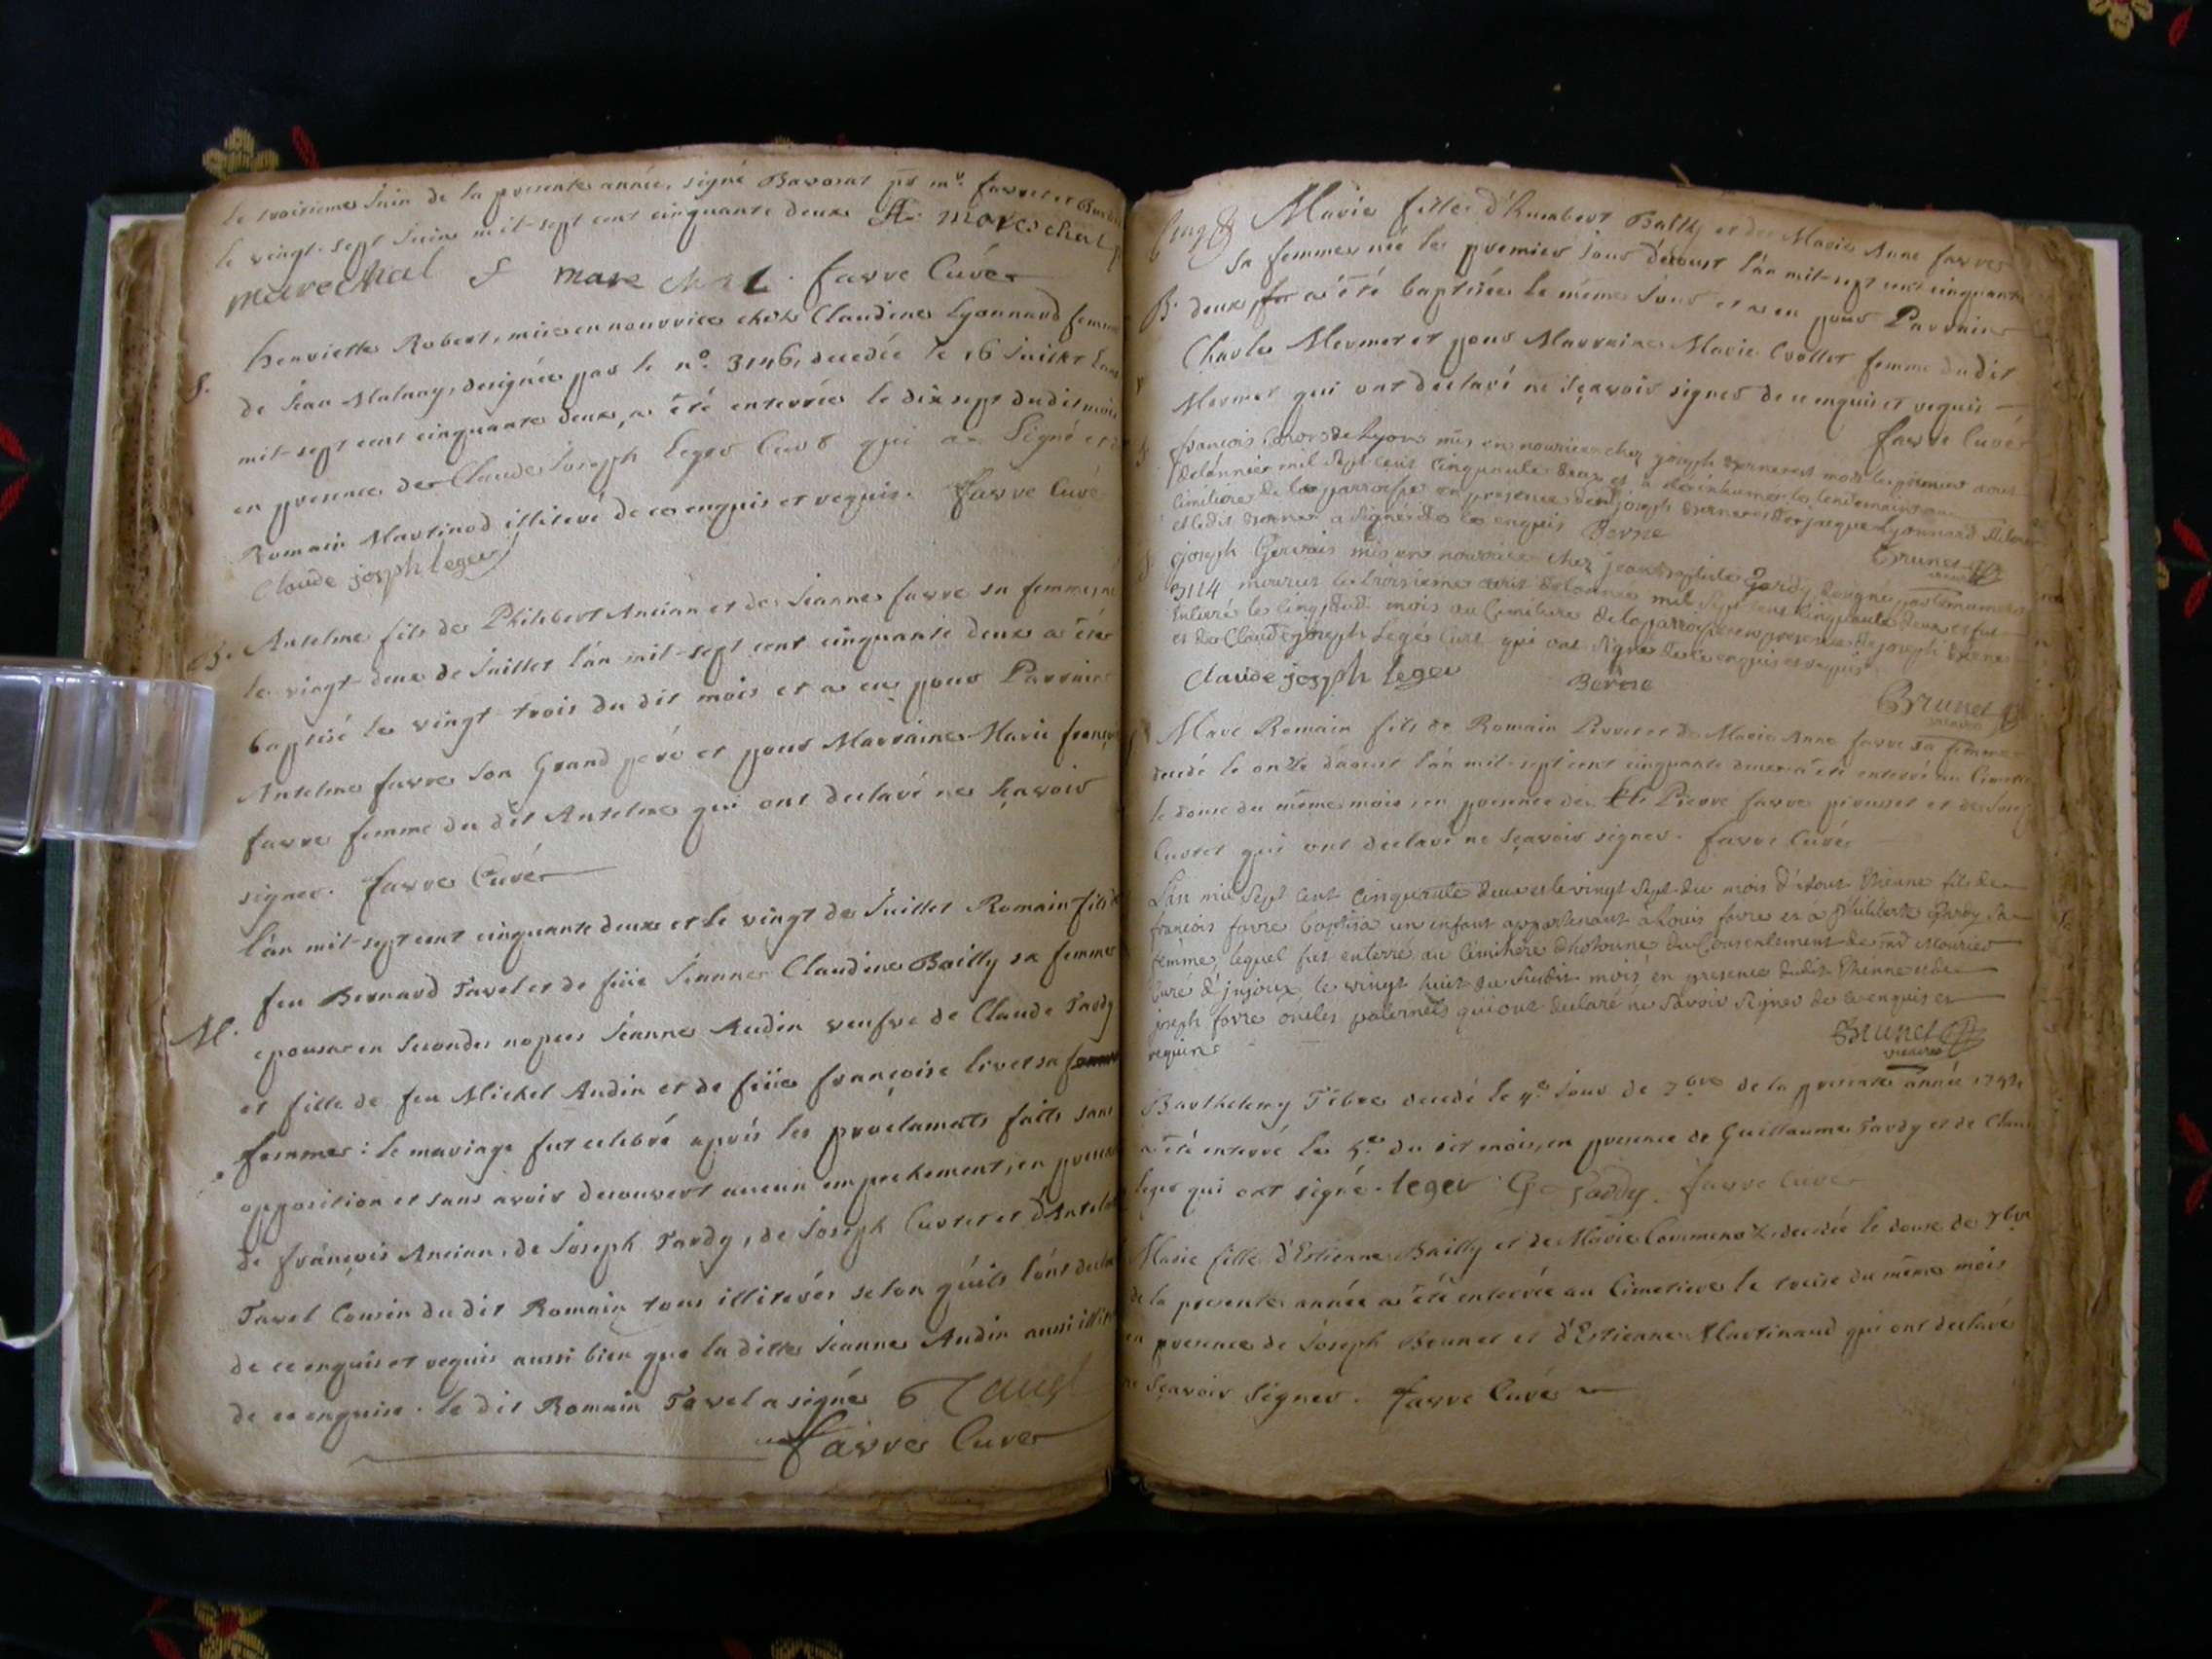 le troisieme Juin de la presente année, signé Bavorat favre et
le vingt-sept Juin mil-sept cent cinquante deux mareschal
marechal f marechal. favre Curé
S. henriette Robert, mise en nourrice chés Claudine Lyonnard femme
de Jean Malnay, designée par le n.º 3146, decedée le 16 Juillet
mil-sept cent cinquante deux, a été enterrée le dix sept dudit mois
en presence de Claude Joseph Leger Curt qui a signé et
Romain Martinod illiteré de ce enquis et requis. favre Curé
Claude joseph leger
B. Antelme fils de Philibert Ancian et de Jeanne favre sa femme, né
le vingt-deux de Juillet l'an mil-sept cent cinquante deux a été
baptisé le vingt-trois du dit mois et a eu pour Parrain
Antelme favre son Grand peré et pour Marraine Marie françoise
favre femme du dit Antelme qui ont declaré ne sçavoir
signer. favre Curé
l'an mil-sept cent cinquante deux et le vingt de Juillet Romain fils de
feu Bernard Tavel et de füe Jeanne Claudine Bailly sa femme
M. epousa en secondes nopces Jeanne Audin veufve de Claude Tardy
et fille de feu Michel Audin et de füe françoise livet sa
femme : le mariage fut celebré aprés les proclamats faits sans
opposition et sans avoir decouvert aucun empechement, en presence
de françois Ancian, de Joseph Tardy, de Joseph Curtet et d'Antelme
Tavel Cousin du dit Romain tous illiterés selon qu'ils l'ont declaré
de ce enquis et requis aussi bien que la ditte Jeanne Audin aussi illiterée
de ce enquise. le dit Romain Tavel a signé Tavel
favre Curé
Marie fille d'humbert Bailly et de Marie Anne favre
sa femme née le premier jour d'aoust l'an mil-sept cent cinquante
B. deux a été baptisée le même jour et a eu pour Parrain
Charles Mermet et pour Marraine Marie Crollet femme dudit
Mermet qui ont declaré ne sçavoir signer de ce enquis et requis
favre Curé
françois de Lyon mis en nourice chez joseph est mort le premier aout
de l'année mil sept cent cinquante deux et a été inhumé le lendemain au
cimitiere de la parroisse en presence de joseph et de jaque Lyonnard
et ledit a signé de ce enquis Berne
Brunet
vicaire
joseph Gervais mis en nourrice chez jean baptiste Gardy, designé par le numero
3114 mourut le troisieme aout de l'année mil sept cent cinquante deux et fut
enterré le cinq dudit mois au cimitiere de la parroisse en presence de joseph
et de Claude joseph Legé Curt qui ont signé de ce enquis et requis
Claude joseph leger Berne
Brunet
vicaire
Marc Romain fils de Romain et de Marie Anne favre sa femme
decedé le onze d'aoust l'an mil-sept cent cinquante deux a été enterré au Cimetiere
le douze du même mois, en presence de Pierre favre et de
Curtet qui ont declaré ne sçavoir signer. favre Curé
L'an mil sept cent cinquante deux et le vingt sept du mois d'Aout Etienne fils de
françois favre baptisa un enfant appartenant à Louis favre et à philiberte Gardy sa
femme, lequel fut enterré au cimitiere d'hotonne du consentement de
Curé d'injoux, le vingt huit du susdit mois en presence dudit Etienne et de
joseph favre oncles paternels qui ont declaré ne savoir signer de ce enquis et
requis
Brunet
vicaire
Barthelemy decedé le 4.e jour de 7.bre de la presente année 1752,
a été enterré le 5.e du dit mois, en presence de Guillaume Tardy et de
leger qui ont signé. leger G tardy. favre Curé
Marie fille d'Estienne Bailly et de Marie decedée le douze de 7bre
de la presente année a été enterrée au Cimetiere le treize du même mois
en presence de Joseph Brunet et d'Estienne Martinaud qui ont declaré
ne sçavoir signer. favre Curé